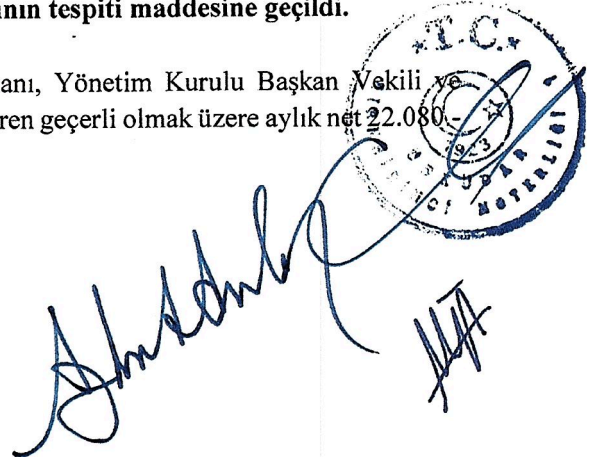 ının tespiti maddesine geçildi.
anı, Yönetim Kurulu Başkan Vekili ve
ren geçerli olmak üzere aylık net 22.080.-
T.C.
ÜSKÜDAR
BİRİNCİ NOTERLİĞİ
1923